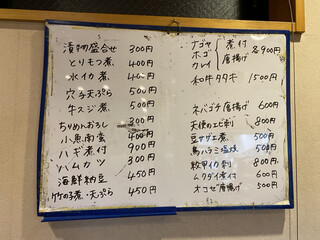 漬物盛合せ 300円
とりもつ煮 400円
水イカ煮 400円
穴子天ぷら 500円
牛スジ煮 500円
ちりめんおろし 300円
小魚南蛮 400円
ハギ煮付 900円
ハムカツ 300円
海鮮納豆 450円
竹の子煮・天ぷら 450円
ナゴヤ 煮付
ホゴ 各900円
クレイ 唐揚げ
和牛タタキ 1500円
ネバゴチ唐揚げ 600円
天使のエビ刺 800円
豆サザエ煮 500円
鳥ハラミ塩焼 500円
紋甲イカ刺 800円
ムクダイ煮付 600円
オコゼ唐揚げ 500円